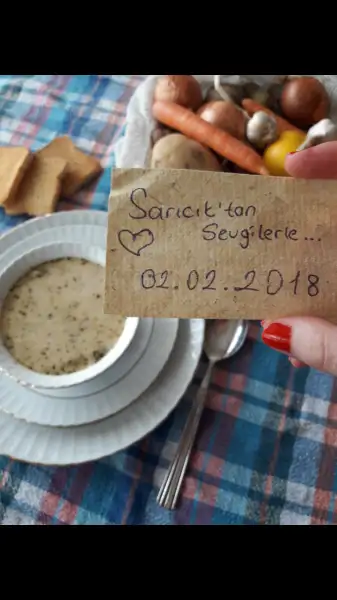 Sarıcık'tan
Sevgilerle...
02.02.2018